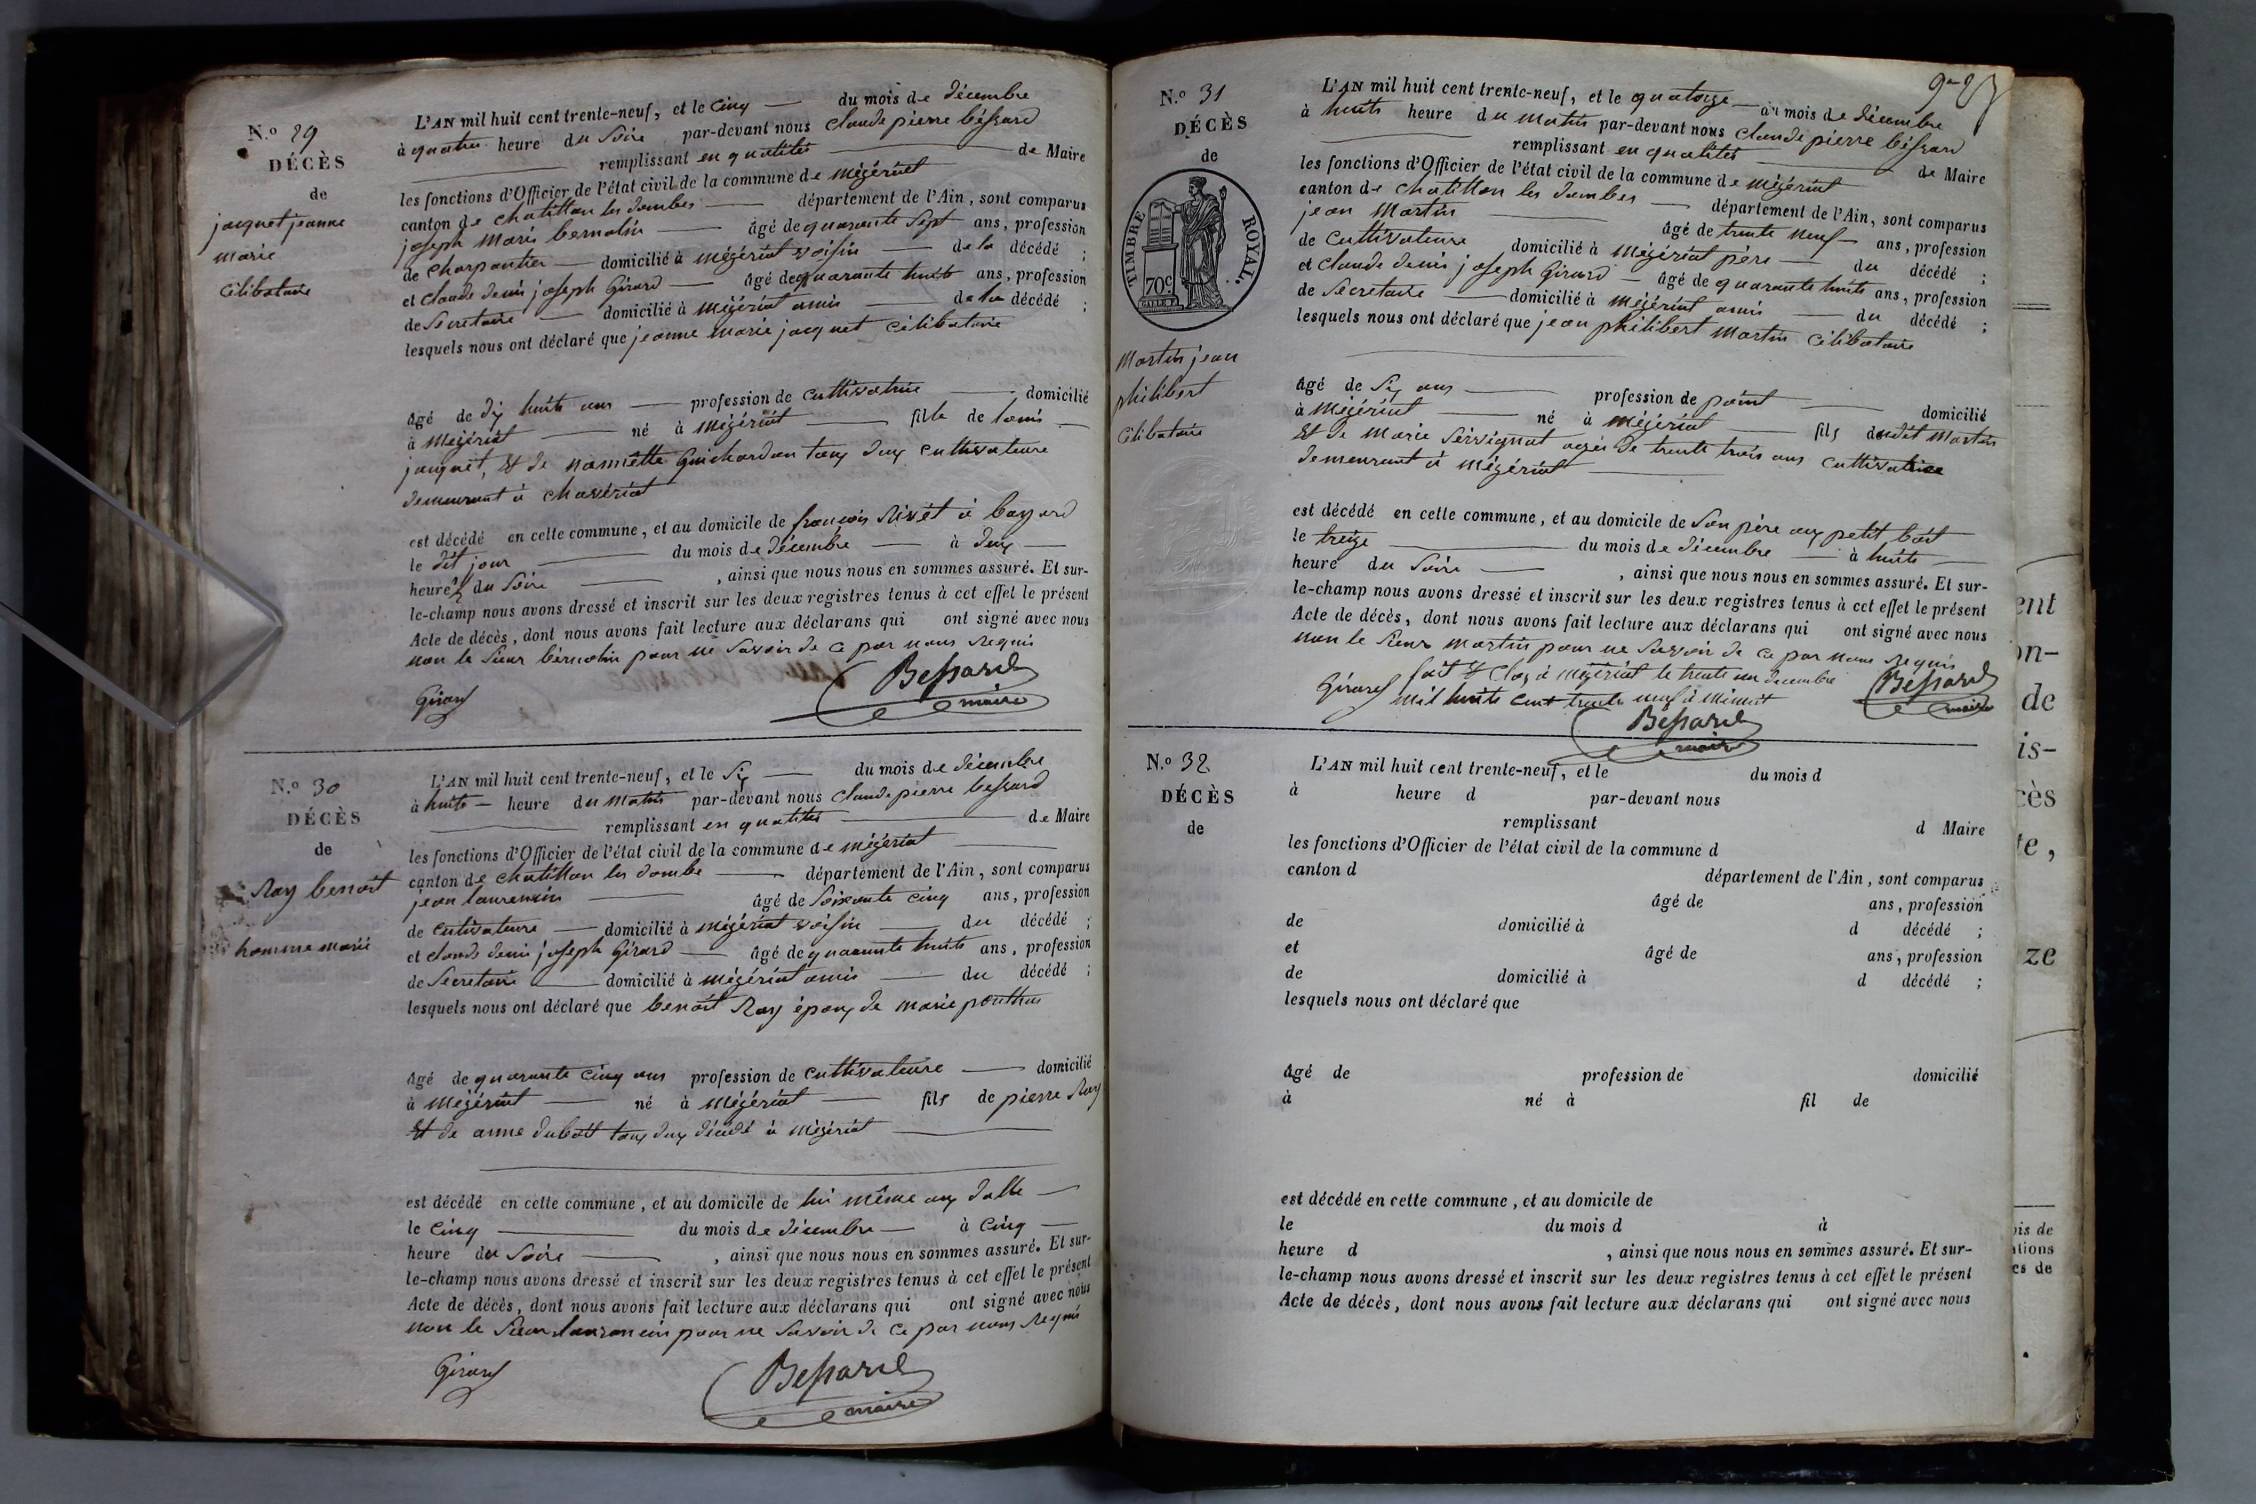 N.º 29
DÉCÈS
de
jacquet jeanne
marie
célibataire
L'AN mil huit cent trente-neuf, et le cinq du mois de décembre
à quatre heure du soire par-devant nous claude pierre bessard
remplissant en qualités de Maire
les fonctions d'Officier de l'état civil de la commune de mézériat
canton de chatillon les dombes département de l'Ain, sont comparus
joseph marie bernolin âgé de quarante sept ans, profession
de charpantier domicilié à mézériat voisin de la décédé ;
et claude denis joseph Girard âgé de quarante huits ans, profession
de Secretaire domicilié à mézériat amis de la décédé ;
lesquels nous ont déclaré que jeanne marie jacquet célibataire
âgé de dix huits ans profession de cultivatrice domicilié
à mézériat né à mézériat fille de louis
jacquet, Et de Guichardan toux dux cultivateure
demeurant à chavériat
est décédé en cette commune, et au domicile de françois Rivèt à bayard
le dit jour du mois de décembre à dux
heure du Soire , ainsi que nous nous en sommes assuré. Et sur-
le-champ nous avons dressé et inscrit sur les deux registres tenus à cet effet le présent
Acte de décès, dont nous avons fait lecture aux déclarans qui ont signé avec nous
non le Sieur bernolin pour ne Savoir de ce par nous Requis
Girard Bessard
maire
N.º 30
DÉCÈS
de
Ray benoit
homme marié
L'AN mil huit cent trente-neuf, et le Six du mois de décembre
à huits heure du matin par-devant nous claude pierre bessard
remplissant en qualités de Maire
les fonctions d'Officier de l'état civil de la commune de mézériat
canton de chatillon les dombe département de l'Ain, sont comparus
jean laurencin âgé de Soixante cinq ans, profession
de cultivateure domicilié à mézériat voisin du décédé ;
et claude denis joseph Girard âgé de quarante huits ans, profession
de Secretaire domicilié à mézériat amis du décédé ;
lesquels nous ont déclaré que benoit Ray époux de marie ponthus
âgé de quarante cinq ans profession de cultivateure domicilié
à mézériat né à mézériat fils de pierre Ray
Et de anne dubost toux dux décédé à mézériat
est décédé en cette commune, et au domicile de lui même aux
le cinq du mois de décembre à cinq
heure du Soire , ainsi que nous nous en sommes assuré. Et sur-
le-champ nous avons dressé et inscrit sur les deux registres tenus à cet effet le présent
Acte de décès, dont nous avons fait lecture aux déclarans qui ont signé avec nous
non le Sieur laurencin pour ne Savoir de ce par nous Requis
Girard Bessard
maire
N.º 31
DÉCÈS
de
TIMBRE ROYAL.
70c
martin jean
philibert
célibataire
L'AN mil huit cent trente-neuf, et le quatorze du mois de décembre
à huits heure du matin par-devant nous claude pierre bessard
remplissant en qualités de Maire
les fonctions d'Officier de l'état civil de la commune de mézériat
canton de chatillon les dombes département de l'Ain, sont comparus
jean martin âgé de trente neuf ans, profession
de cultivateure domicilié à mézériat père du décédé ;
et claude denis joseph Girard âgé de quarante huits ans, profession
de Secretaire domicilié à mézériat amis du décédé ;
lesquels nous ont déclaré que jean philibert martin célibataire
âgé de Six ans profession de point domicilié
à mézériat né à mézériat fils dudit martin
Et de marie agée de trente trois ans cultivatrice
demeurant à mézériat
est décédé en cette commune, et au domicile de Son père aux petit
le treize du mois de décembre à huits
heure du Soire , ainsi que nous nous en sommes assuré. Et sur-
le-champ nous avons dressé et inscrit sur les deux registres tenus à cet effet le présent
Acte de décès, dont nous avons fait lecture aux déclarans qui ont signé avec nous
non le Sieur martin pour ne Savoir de ce par nous Requis
fait & Clos à mézériat le trente un décembre
Girard mil huits cent trente neuf à minuit Bessard
maire
Bessard
maire
N.º 32
DÉCÈS
de
L'AN mil huit cent trente-neuf, et le du mois d
à heure d par-devant nous
remplissant d Maire
les fonctions d'Officier de l'état civil de la commune d
canton d département de l'Ain, sont comparus
âgé de ans, profession
de domicilié à d décédé ;
et âgé de ans, profession
de domicilié à d décédé ;
lesquels nous ont déclaré que
âgé de profession de domicilié
à né à fil de
est décédé en cette commune, et au domicile de
le du mois d à
heure d , ainsi que nous nous en sommes assuré. Et sur-
le-champ nous avons dressé et inscrit sur les deux registres tenus à cet effet le présent
Acte de décès, dont nous avons fait lecture aux déclarans qui ont signé avec nous
ent
on-
de
is-
cès
te,
ze
ois de
ations
es de